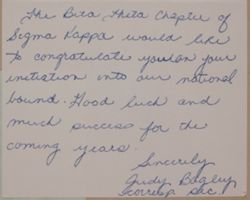 The Beta Theta Chapter of
Sigma Kappa would like
to congratulate you on your
initiation into our national
bound. Good luck and
much success for the
coming years.
Sincerely
Judy Bagley
Corresp. Sec.